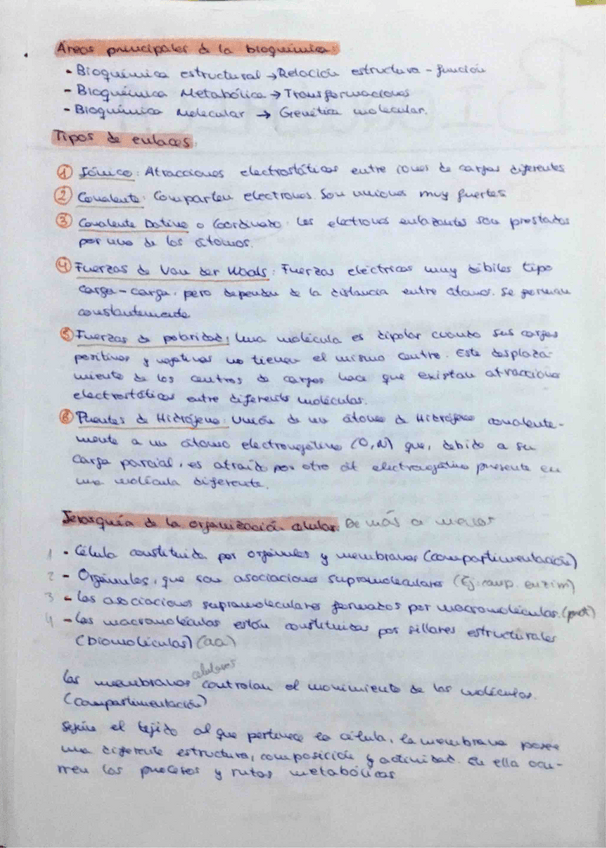 Áreas principales de la bioquímica:
- Bioquímica estructural → Relación estructura - función
- Bioquímica Metabólica → Transformaciones
- Bioquímica Molecular → Genética molecular.
Tipos de enlaces:
1 Iónico: Atracciones electrostáticas entre iones de cargas diferentes
2 Covalente: Comparten electrones. Son uniones muy fuertes
3 Covalente Dativo o Coordinado: Los electrones enlazantes son prestados
por uno de los átomos.
4 Fuerzas de Van der Waals: Fuerzas eléctricas muy débiles tipo
carga-carga, pero dependen de la distancia entre átomos. Se forman
constantemente
5 Fuerzas de polaridad: Una molécula es dipolar cuando sus cargas
positivas y negativas no tienen el mismo centro. Este desplaza-
miento de los centros de cargas hace que existan atracciones
electrostáticas entre diferente moléculas.
6 Puentes de Hidrógeno: Unión de un átomo de Hidrógeno covalente-
mente a un átomo electronegativo (O,N) que, debido a su
carga parcial, es atraído por otro át electronegativo presente en
una molécula diferente.
Jerarquía de la organización celular: De más a menos
1 - Célula constituida por orgánulos y membranas (compartimentación)
2 - Orgánulos, que son asociaciones supramoleculares (Ej: comp. enzim)
3 - Las asociaciones supramoleculares formadas por macromoléculas. (prot)
4 - Las macromoléculas están constituidas por sillares estructurales
(biomoléculas) (aa)
Las membranas celulares controlan el movimiento de las moléculas
(compartimentación)
Según el tejido al que pertenece la célula, la membrana posee
una diferente estructura, composición y actividad. En ella ocu-
rren los procesos y rutas metabólicas